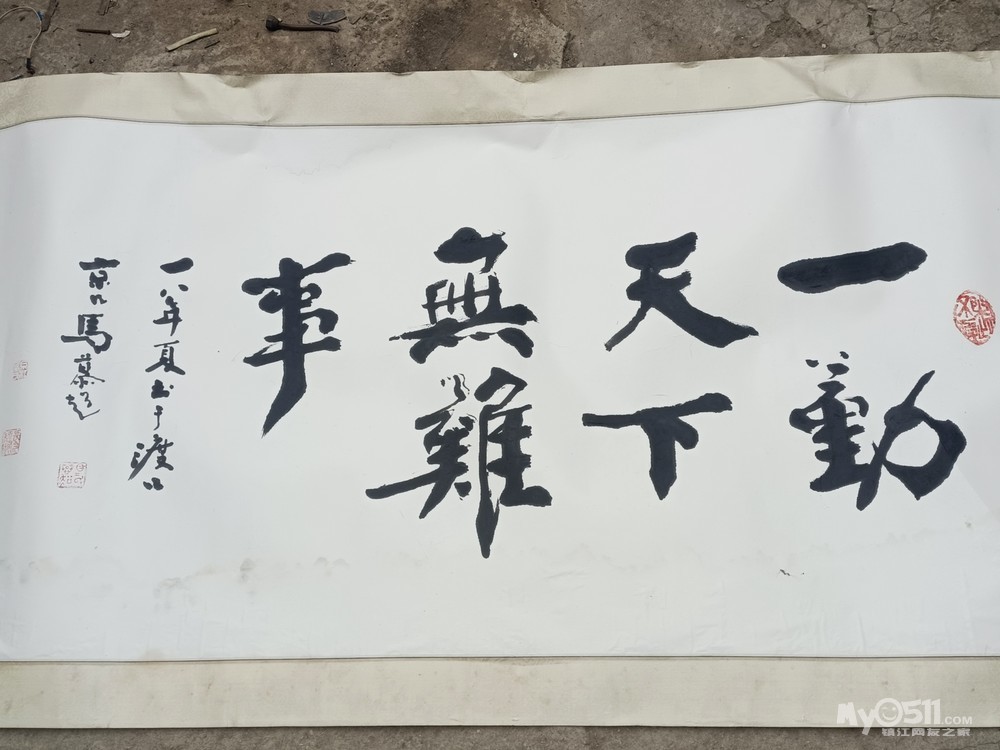 一勤
天下
無難
事
一八年夏书于渡口
京口馬慕超
My0511.COM
镇江网友之家